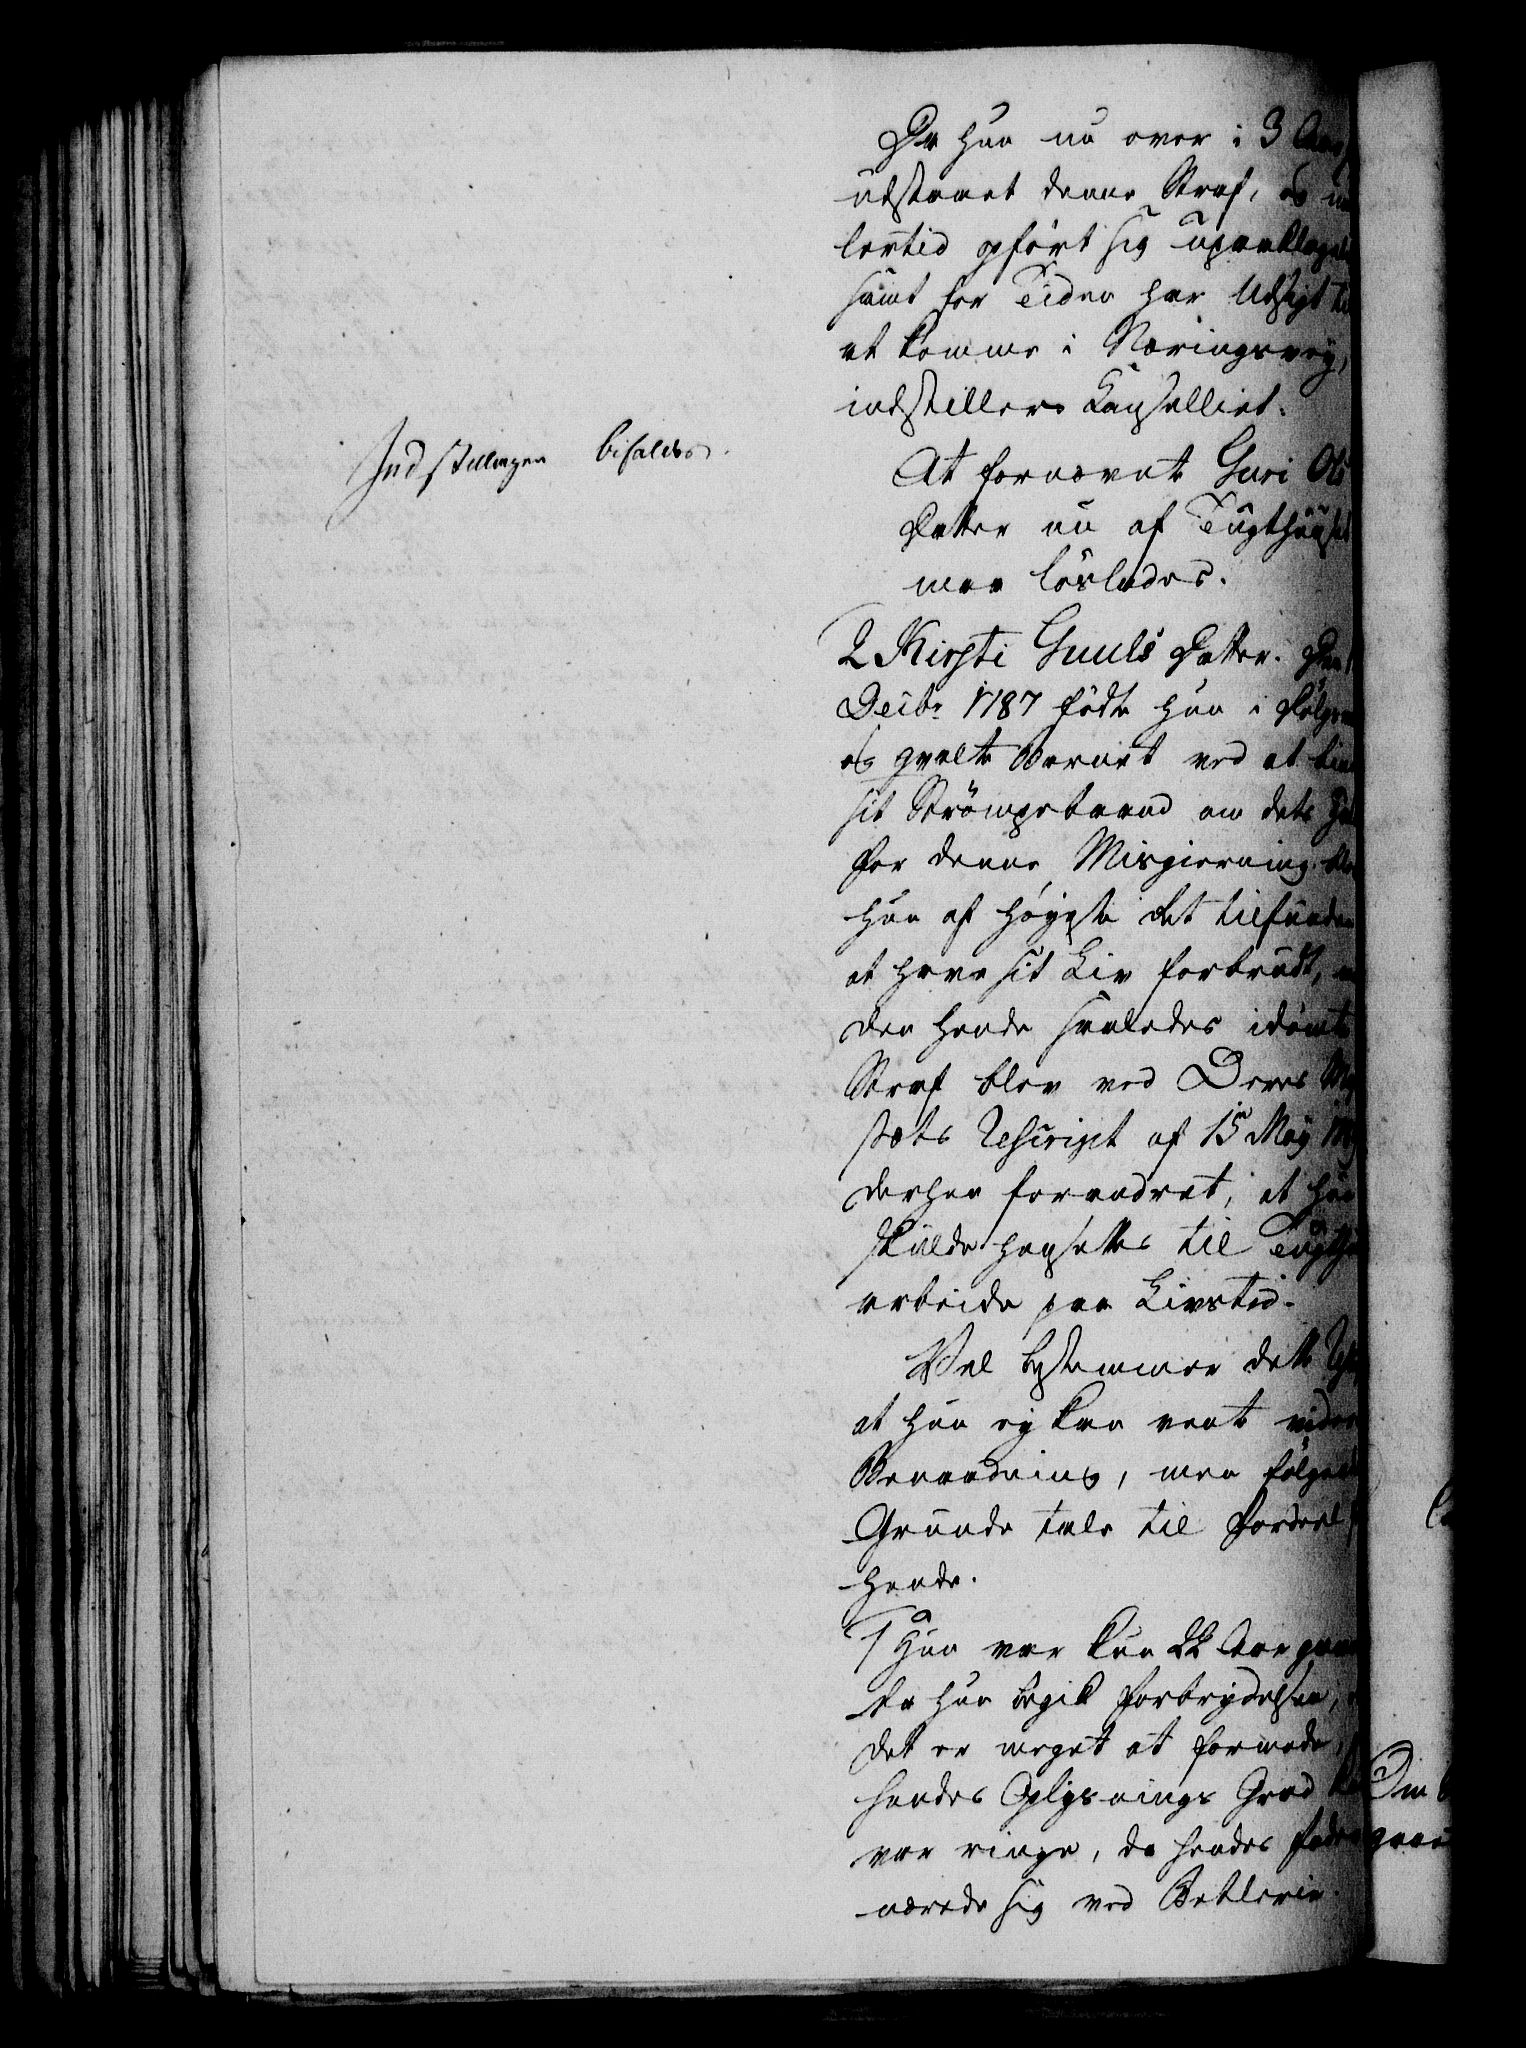 Da hun nu over i 3 Aar
udstaaet denne Straf, og im
lertid opført sig upaaklagel
samt for Tiden har Udsigt til
at komme i Næringsvey,
indstiller Kanselliet.
Indstillingen bifaldes.
At fornævnte Guri Ols
Datter nu af Tugthuuset
maa løslades.
2 Kirsti Gunls Datter. Den
Decbr 1787 fødte hun i Dølgsm
og qvalte Barnet ved at bin
sit Strømpebaand om dets Ha
for denne Misgierning ble
hun af Høyeste Ret tilfunden
at have sit Liv forbrudt, m
den hende saaledes idømte
Straf blev ved Deres Maj
stæts Rescript af 15 May 178
derhen forandret, at hun
skulde hensættes til Tugth
arbeide paa Livstid.
Vel bestemmer dette Res
at hun ey kan vente videre
Benaadning, men følgende
Grunde tale til Fordeel f
hende.
1 Hun var kun 22 Aar gam
da hun begik Forbrydelsen,
det er meget at formode,
hendes Oplysnings Grad
var ringe, da hendes Fader
nærede sig ved Betlerie.